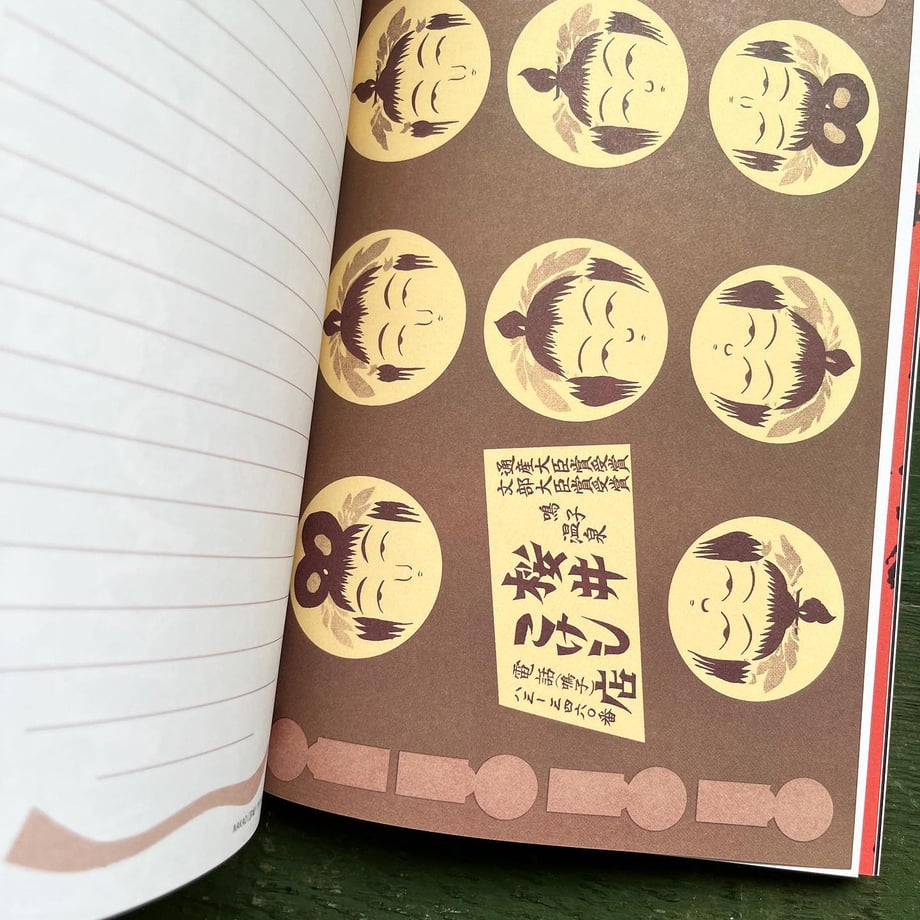 通産大臣賞受賞
文部大臣賞受賞
鳴子
温泉
桜井
こけし店
電話(鳴子)
八三ー三四六〇番